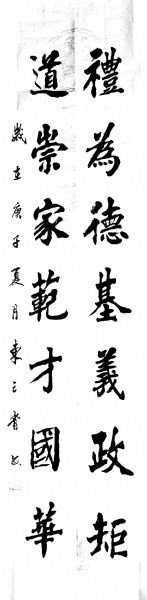 禮為德基義政矩
道崇家範才國華
歲在庚子夏月東三省書